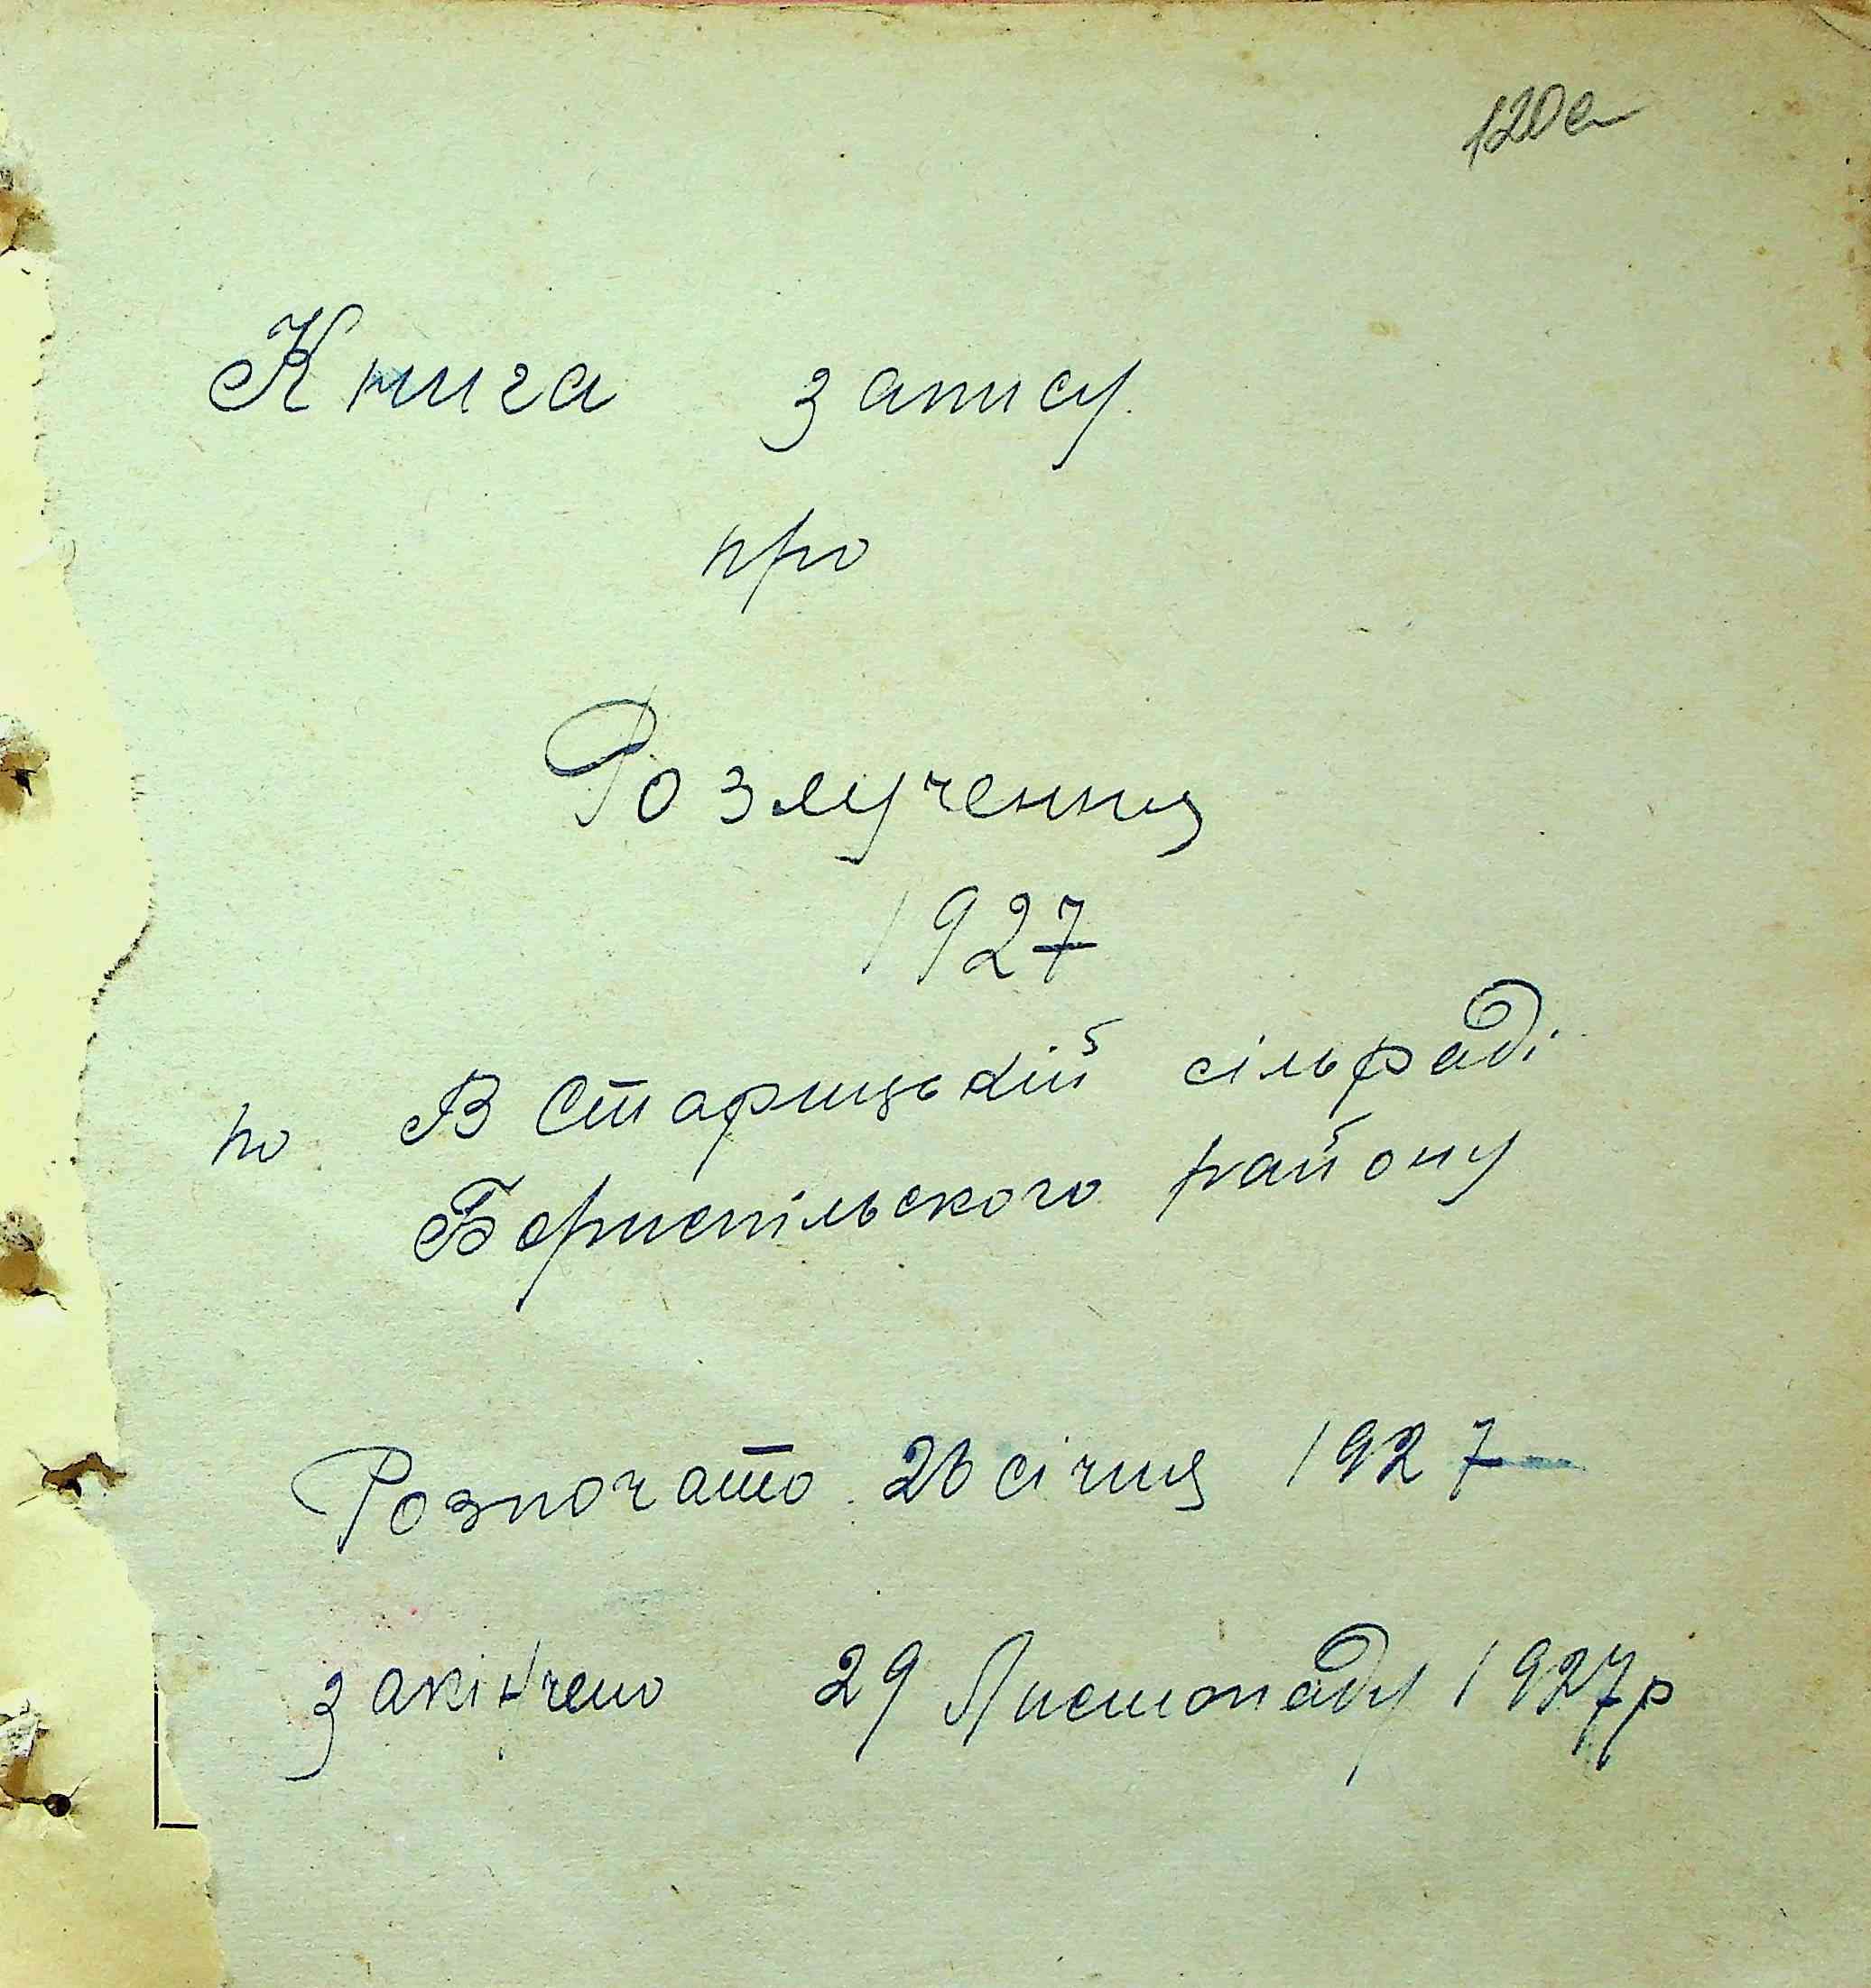 Книга запису
про
Розлучення
1927
по В Старицькій сільраді
Бориспільского району
Розпочато 26 січня 1927
закінчено 29 Листопаду 1927р